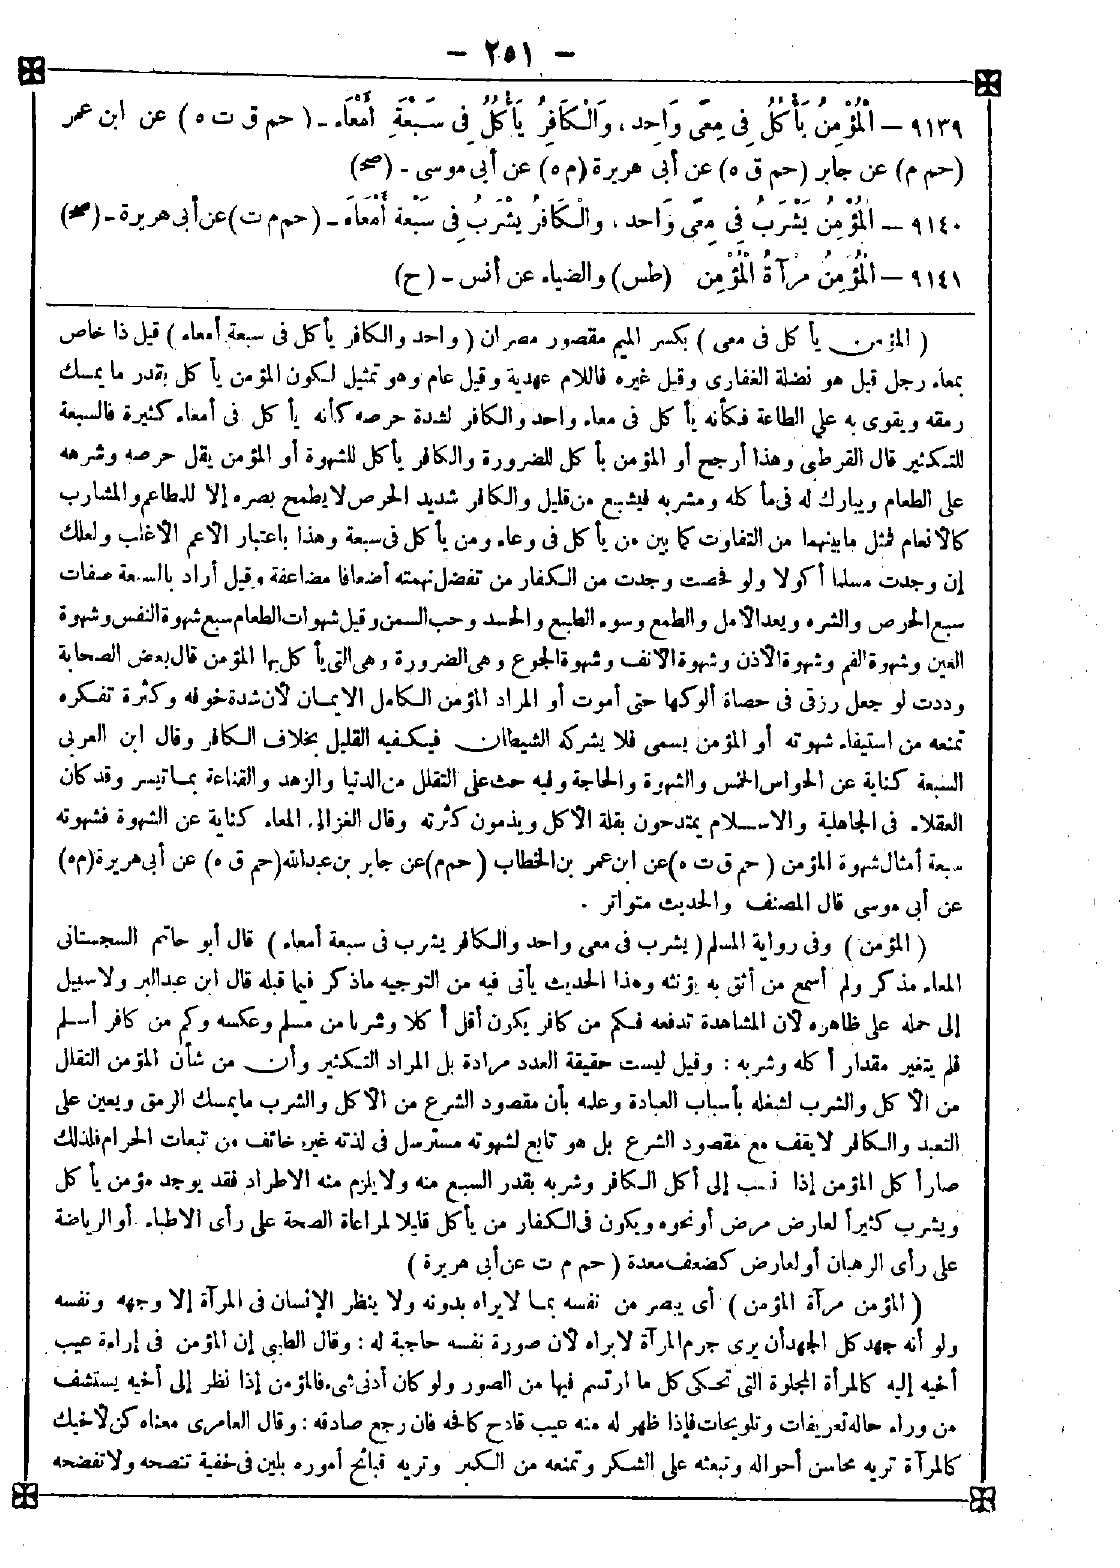 – ٢٥١ –
٩١٣٩ – الْمُؤْمِنُ يَأْكُلُ فِي مِعًى وَاحِدٍ، وَالْكَافِرُ يَأْكُلُ فِي سَبْعَةِ أَمْعَاءٍ - (حم ق ت ه) عن ابن عمر
(حم م) عن جابر (حم ق ه) عن أبى هريرة (م ه) عن أبى موسى - (صح)
٩١٤٠ – الْمُؤْمِنُ يَشْرَبُ فِي مِعًى وَاحِدٍ، وَالْكَافِرُ يَشْرَبُ فِي سَبْعَةِ أَمْعَاءٍ - (حم م ت) عن أبى هريرة - (صح)
٩١٤١ – الْمُؤْمِنُ مِرْآةُ الْمُؤْمِنِ (طس) والضياء عن أنس - (ح)
( المؤمن يأكل فى معى ) بكسر الميم مقصور مصران ( واحد والكافر يأكل فى سبعة أمعاء ) قيل ذا خاص
بمعاء رجل قيل هو نضلة الغفارى وقيل غيره فاللام عهدية وقيل عام وهو تمثيل لكون المؤمن يأكل بقدر ما يمسك
رمقه ويقوى به على الطاعة فكأنه يأكل فى معاء واحد والكافر لشدة حرصه كأنه يأكل فى أمعاء كثيرة فالسبعة
للتكثير قال القرطبى وهذا أرجح أو المؤمن يأكل للضرورة والكافر يأكل للشهوة أو المؤمن يقل حرصه وشرهه
على الطعام ويبارك له فى مأكله ومشربه فيشبع من قليل والكافر شديد الحرص لا يطمح بصره إلا للمطاعم والمشارب
كالأنعام فمثل ما بينهما من التفاوت كما بين من يأكل فى وعاء ومن يأكل فى سبعة وهذا باعتبار الأعم الأغلب ولعلك
إن وجدت مسلما أكولا ولو فحصت وجدت من الكفار من تفضل نهمته أضعافا مضاعفة وقيل أراد بالسبعة صفات
سبع الحرص والشره وبعد الأمل والطمع وسوء الطبع والحسد وحب السمن وقيل شهوات الطعام سبع شهوة النفس وشهوة
العين وشهوة الفم وشهوة الأذن وشهوة الأنف وشهوة الجوع وهى الضرورة وهى التى يأكل بها المؤمن قال بعض الصحابة
وددت لو جعل رزقى فى حصاة ألوكها حتى أموت أو المراد المؤمن الكامل الإيمان لأن شدة خوفه وكثرة تفكره
تمنعه من استيفاء شهوته أو المؤمن يسمى فلا يشركه الشيطان فيكفيه القليل بخلاف الكافر وقال ابن العربى
السبعة كناية عن الحواس الخمس والشهوة والحاجة وفيه حث على التقلل من الدنيا والزهد والقناعة بما تيسر وقد كان
العقلاء فى الجاهلية والإسلام يمتدحون بقلة الأكل ويذمون كثرته وقال الغزالى المعاء كناية عن الشهوة فشهوته
سبعة أمثال شهوة المؤمن ( حم ق ت ه ) عن ابن عمر بن الخطاب ( حم م ) عن جابر بن عبدالله ( حم ق ه ) عن أبى هريرة ( م ه )
عن أبى موسى قال المصنف والحديث متواتر .
( المؤمن ) وفى رواية المسلم ( يشرب فى معى واحد والكافر يشرب فى سبعة أمعاء ) قال أبو حاتم السجستانى
المعاء مذكر ولم أسمع من أثق به يؤنثه وهذا الحديث يأتى فيه من التوجيه ما ذكر فيما قبله قال ابن عبدالبر ولا سبيل
إلى حمله على ظاهره لأن المشاهدة تدفعه فكم من كافر يكون أقل أكلا وشربا من مسلم وعكسه وكم من كافر أسلم
فلم يتغير مقدار أكله وشربه : وقيل ليست حقيقة العدد مرادة بل المراد التكثير وأن من شأن المؤمن التقلل
من الأكل والشرب لشغله بأسباب العبادة وعلمه بأن مقصود الشرع من الأكل والشرب ما يمسك الرمق ويعين على
التعبد والكافر لا يقف مع مقصود الشرع بل هو تابع لشهوته مسترسل فى لذته غير خائف من تبعات الحرام فلذلك
صار أكل المؤمن إذا نسب إلى أكل الكافر وشربه بقدر السبع منه ولا يلزم منه الاطراد فقد يوجد مؤمن يأكل
ويشرب كثيراً لعارض مرض أو نحوه ويكون فى الكفار من يأكل قليلا لمراعاة الصحة على رأى الأطباء أو الرياضة
على رأى الرهبان أو لعارض كضعف معدة ( حم م ت عن أبى هريرة )
( المؤمن مرآة المؤمن ) أى يبصر من نفسه بما لا يراه بدونه ولا ينظر الإنسان فى المرآة إلا وجهه ونفسه
ولو أنه جهد كل الجهد أن يرى جرم المرآة لا يراه لأن صورة نفسه حاجبة له : وقال الطيبى إن المؤمن فى إراءة عيب
أخيه إليه كالمرأة المجلوة التى تحكى كل ما ارتسم فيها من الصور ولو كان أدنى شىء فالمؤمن إذا نظر إلى أخيه يستشف
من وراء حاله تعريفات وتلويحات فإذا ظهر له منه عيب قادح كافحه فإن رجع صادقه : وقال العامرى معناه كن لأخيك
كالمرآة تريه محاسن أحواله وتبعثه على الشكر وتمنعه من الكبر وتريه قبائح أموره بلين فى خفية تنصحه ولا تفضحه